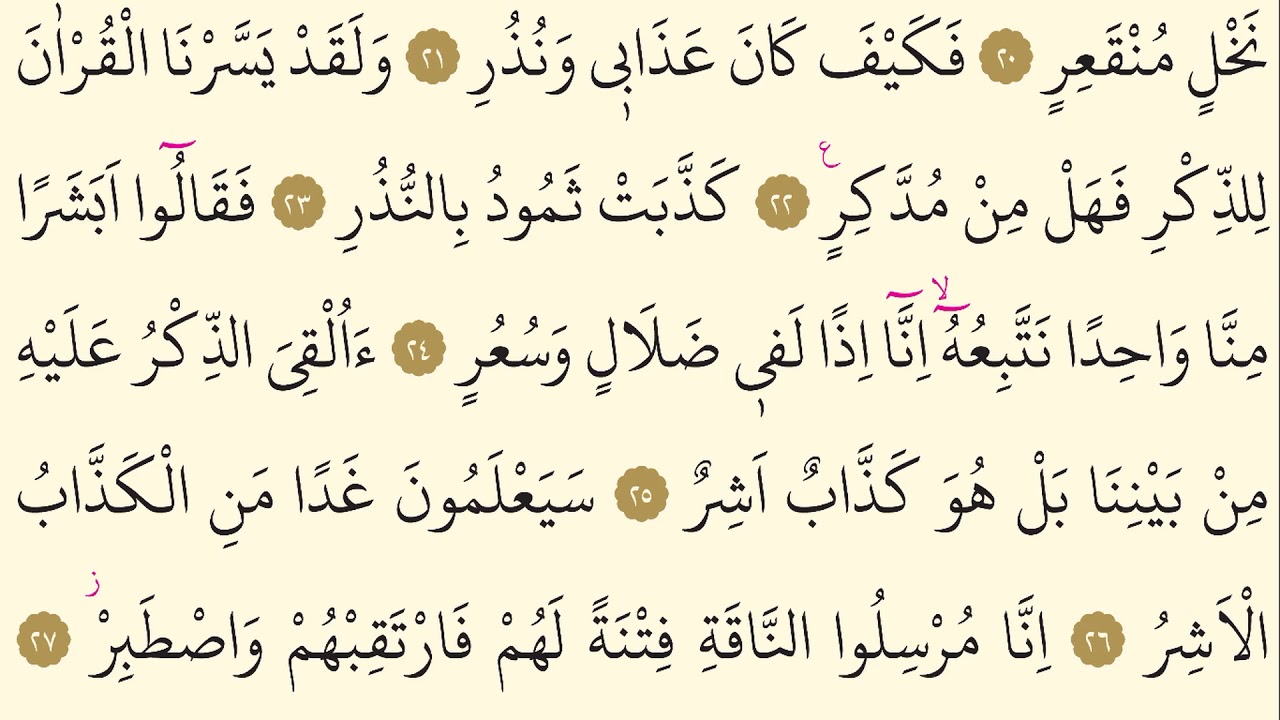 نَخْلٍ مُنْقَعِرٍ ﴿٢٠﴾ فَكَيْفَ كَانَ عَذَابٖى وَنُذُرِ ﴿٢١﴾ وَلَقَدْ يَسَّرْنَا الْقُرْاٰنَ
لِلذِّكْرِ فَهَلْ مِنْ مُدَّكِرٍ ۧ ﴿٢٢﴾ كَذَّبَتْ ثَمُودُ بِالنُّذُرِ ﴿٢٣﴾ فَقَالُٓوا اَبَشَرًا
مِنَّا وَاحِدًا نَتَّبِعُهُٓ ۙ اِنَّٓا اِذًا لَفٖى ضَلَالٍ وَسُعُرٍ ﴿٢٤﴾ ءَاُلْقِىَ الذِّكْرُ عَلَيْهِ
مِنْ بَيْنِنَا بَلْ هُوَ كَذَّابٌ اَشِرٌ ﴿٢٥﴾ سَيَعْلَمُونَ غَدًا مَنِ الْكَذَّابُ
الْاَشِرُ ﴿٢٦﴾ اِنَّا مُرْسِلُوا النَّاقَةِ فِتْنَةً لَهُمْ فَارْتَقِبْهُمْ وَاصْطَبِرْ ز ﴿٢٧﴾